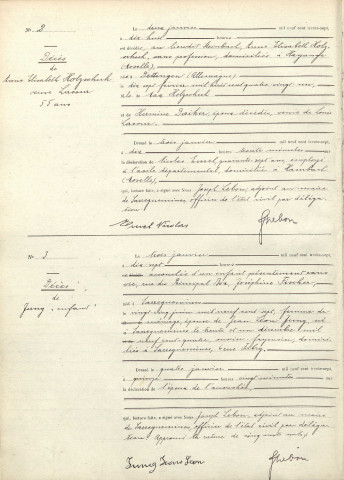 N° 2
Décès
de
Anne Elisabeth Holzscherk
veuve Lacour
55 ans
Le deux janvier mil neuf cent trente-sept,
à dix huit heures
est décédée, Anne Elisabeth Holz
sans profession, domiciliée à Hayange
(Moselle)
née à Bottongen (Allemagne)
le dix sept février mil huit cent quatre vingt un,
Holzscherk
et de Hermine Daiker, épouse décédée, veuve de Louis
Lacour
Dressé le trois janvier mil neuf cent trente-sept,
à heures trente minutes
la déclaration de Nicolas Emel, quarante sept ans, employé
à l'asile départemental, domicilié à
(Moselle)
qui, lecture faite, a signé avec Nous, Joseph Lebon, adjoint au maire
de Sarreguemines, officier de l'état civil par déléga
tion
Emel Nicolas
JLebon
N° 3
Décès
de
Jung "enfant"
Le trois janvier mil neuf cent trente-sept,
à dix sept heures
est accouchée d'un enfant présentement sans
vie, rue du Principal Joséphine
à Sarreguemines
le vingt cinq juin mil neuf cent sept, femme de
ménage, épouse de Jean Léon Jung, né
à Sarreguemines, le trente et un décembre mil
neuf cent quatre, ouvrier faïencier, domici
liés à Sarreguemines,
Dressé le quatre janvier mil neuf cent trente-sept,
à quinze heures vingt minutes sur
la déclaration de l'époux de l'accouchée
qui, lecture faite, a signé avec Nous, Joseph Lebon, adjoint au maire
de Sarreguemines, officier de l'état civil par déléga
tion. Approuvé la rature de cinq mots nuls
Jung Jean Léon
JLebon